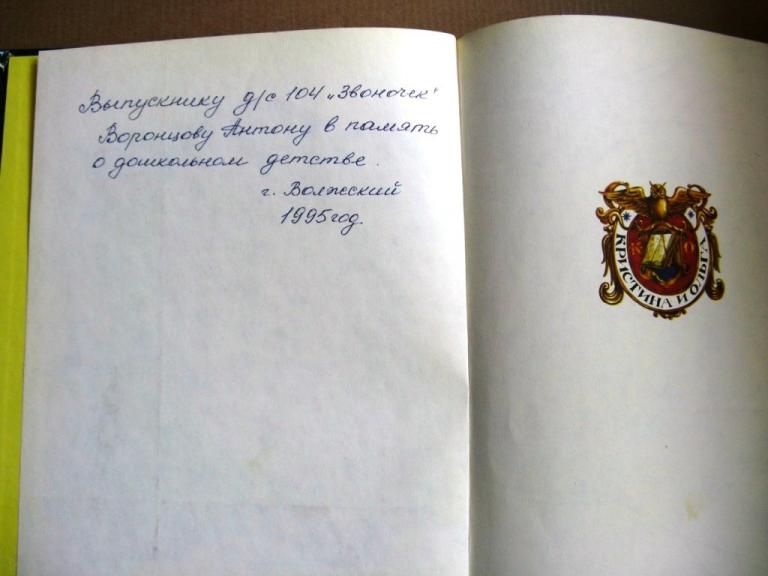 Выпускнику д/с 104 „Звоночек"
Воронцову Антону в память
о дошкольном детстве.
г. Волжский
1995 год.
КРИСТИНА И ОЛЬГА